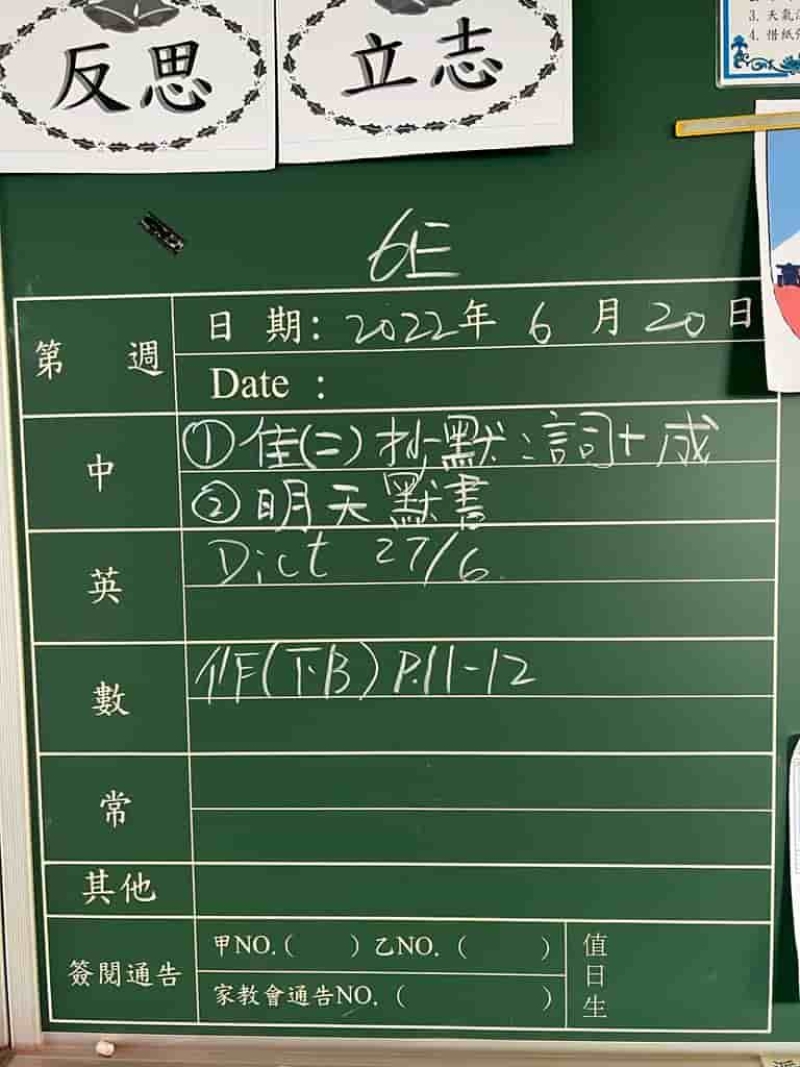 反思
立志
3. 天氣
4. 借紙
6E
第 週
日 期: 2022年 6 月 20 日
Date :
中
① 佳(二) 抄默:詞+成
② 明天默書
英
Dict 27/6
數
作(下B) P.11-12
常
其他
簽閱通告
甲NO. ( ) 乙NO. ( )
家教會通告NO. ( )
值日生